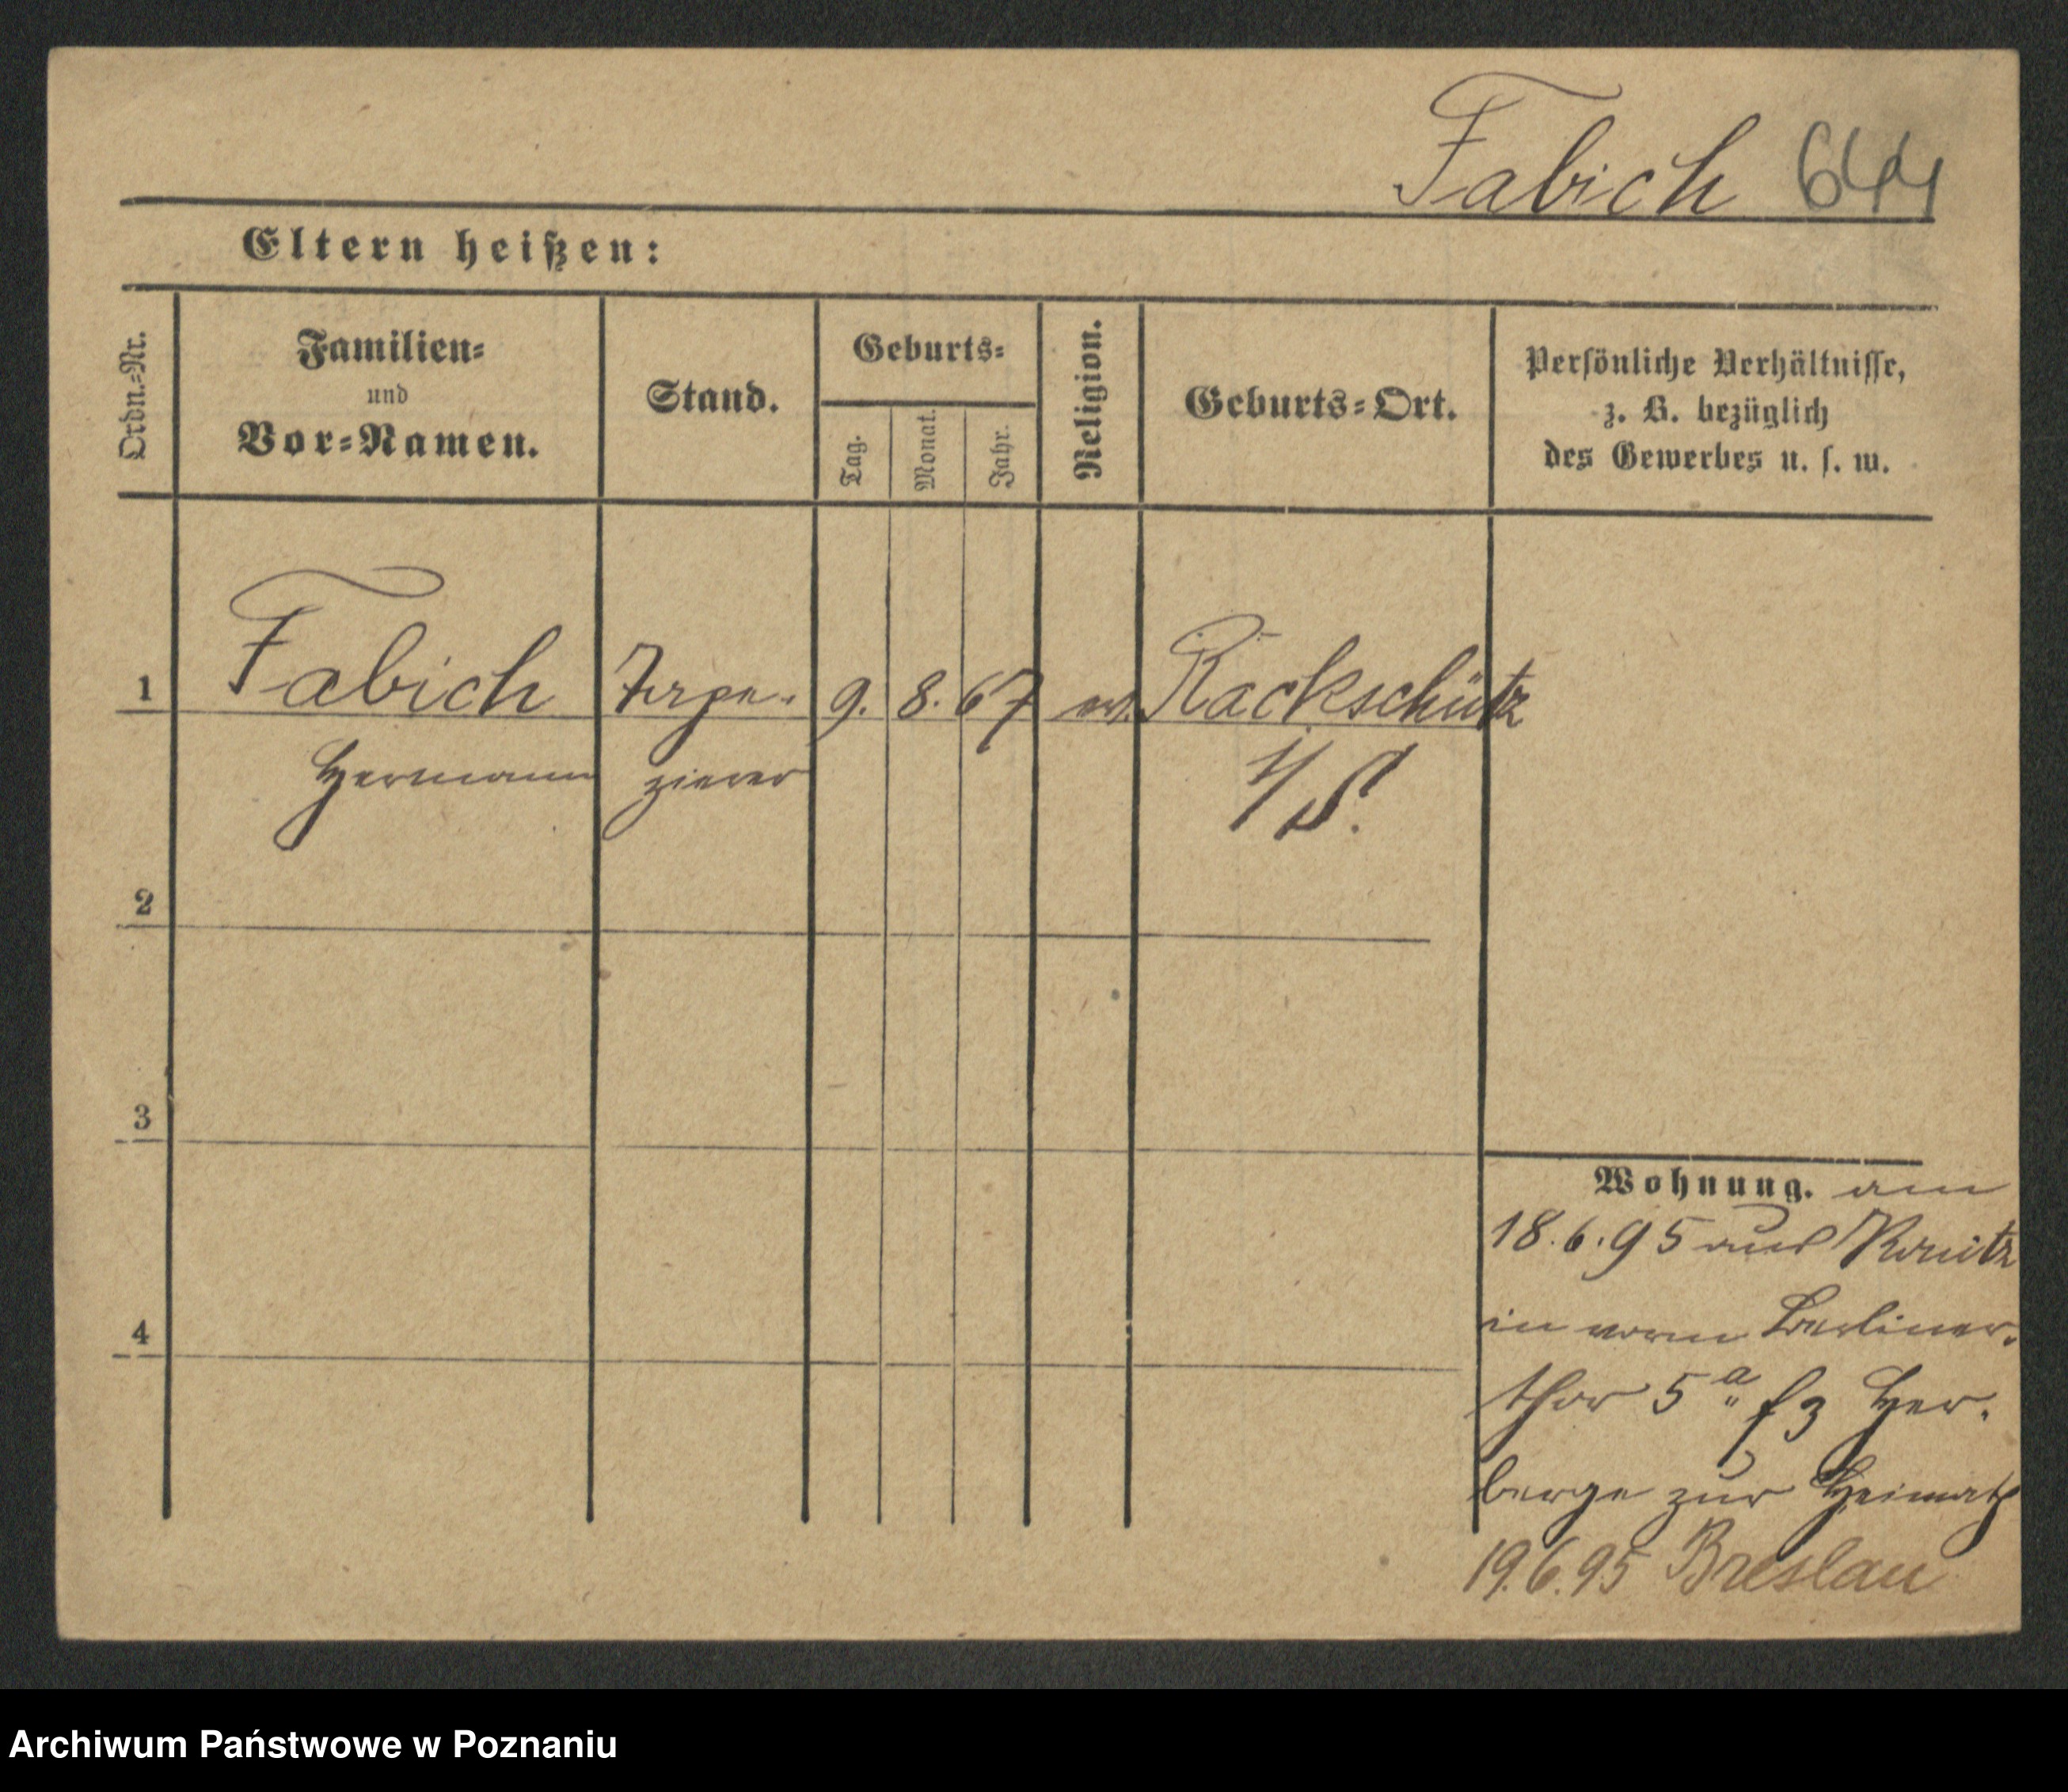 Fabich 644
Eltern heißen:
Ordn.-Nr.
Familien-
und
Vor-Namen.
Stand.
Geburts-
Tag.
Monat.
Jahr.
Religion.
Geburts-Ort.
Persönliche Verhältnisse,
z. B. bezüglich
des Gewerbes u. s. w.
1 Fabich Tape- 9. 8. 67 ev. Rackschütz
Hermann zierer
2
3
4
Wohnung. am
18.6.95 aus
in vorm Berliner-
thor 5a fz Her-
berge zur Heimath
19.6.95 Breslau
Archiwum Państwowe w Poznaniu